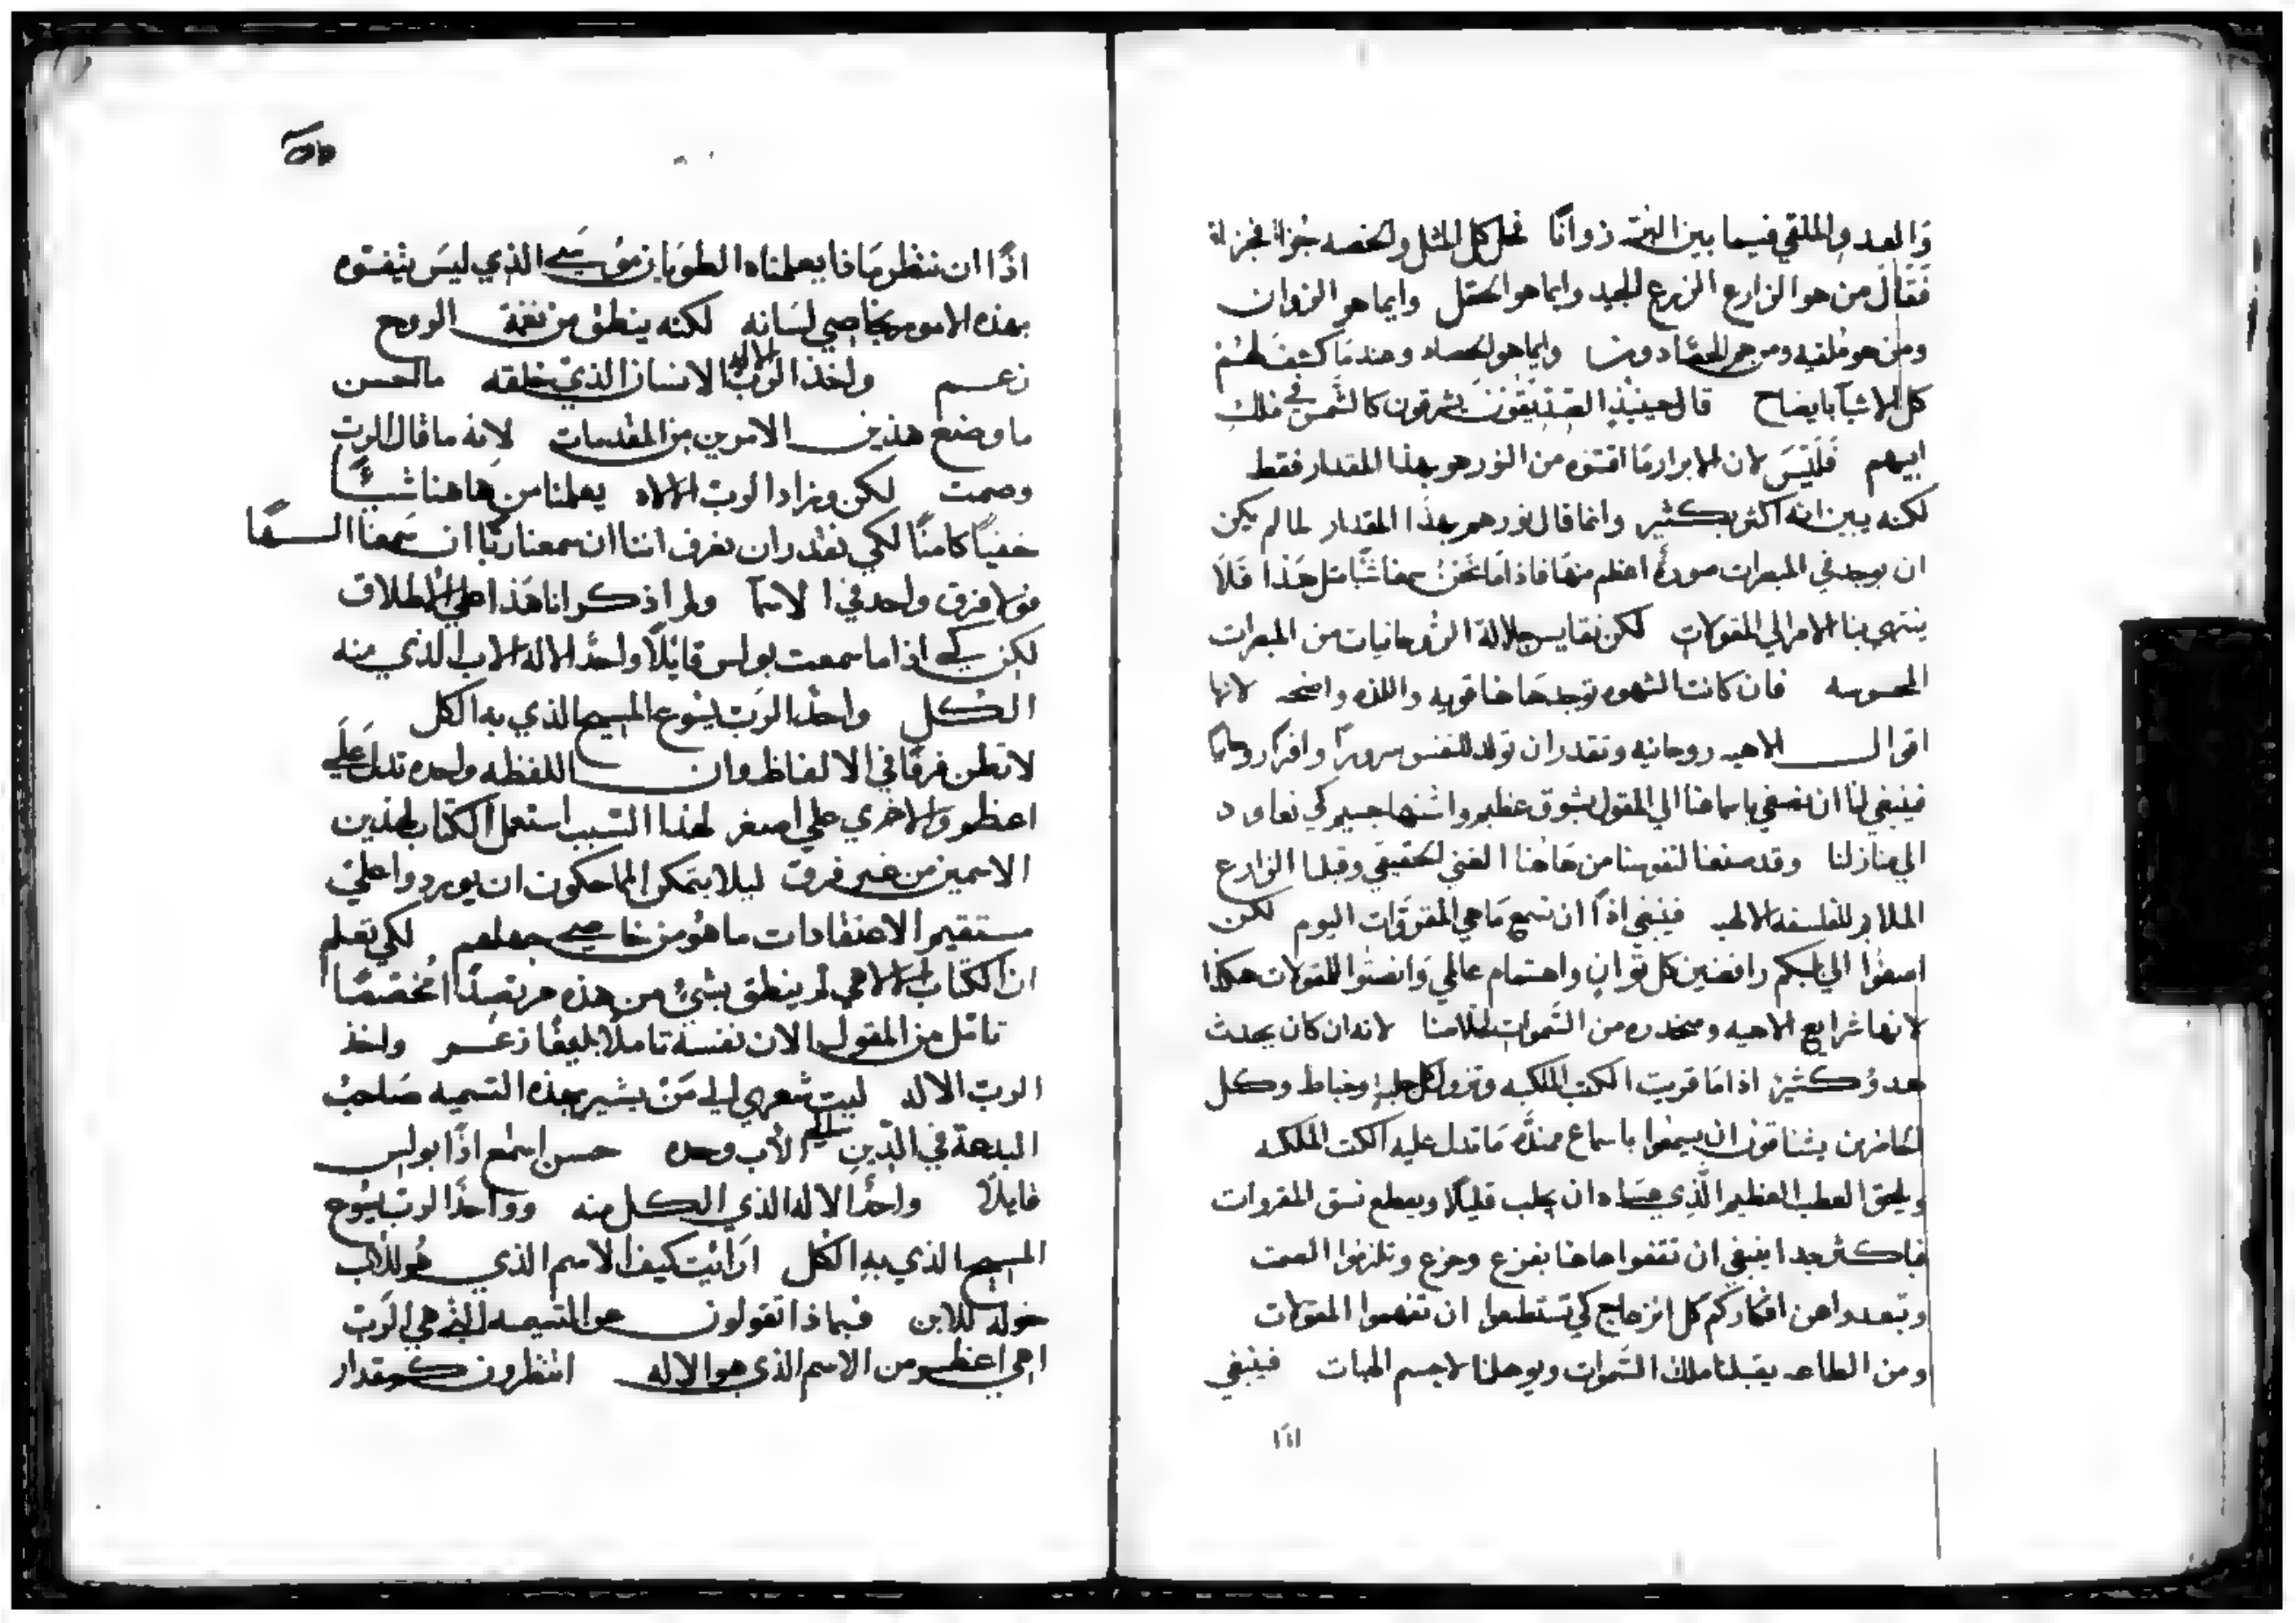 والعدو الملقي فيما بين البر زوانا فحل كل المثل ولخصه جزا فجزاة
فقال من هو الزارع الزرع الجيد وايما هو الحقل وايما هو الزوان
ومن هو ملقيه ومن هم الحصادون وايما هو الحصاد وعندما كشف لهم
كل الاشيا بايضاح قال حينيذ الصديقون يشرقون كالشمس في ملك
ابيهم فليس لان الابرار ما اقتنوه من النور هو بهذا المقدار فقط
لكنه يبين انه اكثر بكثير وانما قال نورهم بهذا المقدار لما لم يكن
ان يوجد في المبصرات صورة اعظم منها فاذا ما نحن سمعنا شيا مثل هذا فلا
ينتهي بنا الامر الي المقولات لكن نقايس جلالة الروحانيات من المبصرات
المحسوسه فان كانت الشهوه توجد هاهنا قويه واللذه واضحه لانها
اقوال الاهيه روحانيه وتقدر ان تولد للنفس سرورا وافرا روحانيا
فينبغي لنا ان نصغي باسماعنا الي المقول بشوق عظيم واشتها جسيم كي نعاود
الي منازلنا وقد صنعنا لنفوسنا من هاهنا الغني الحقيقي وقبلنا الزارع
الملايم للفلسفه الالهيه فينبغي اذا ان نسمع ما هي المقروات اليوم لكن
اصغوا الي ابحكم رافضين كل توان واهتمام عالمي وانصتوا للمقولات هكذا
لانها شرايع الاهيه ومنحدره من السموات لخلاصنا لانه ان كان يحدث
هدو كثير اذا ما قريت الكتب الملكيه وتزول كل جلبه وخباط وكل
الحاضرين يشتاقون ان يسمعوا باسماع منتصبه ما تدل عليه الكتب الملكيه
ويلحق العطب العظيم الذي عساه ان يجلب قليلا ويقطع نسق المقروات
فاكثر جدا ينبغي ان تقفوا هاهنا بفزع وجزع وتلزموا الصمت
وتبعدوا عن افكاركم كل انزعاج كي تستطيعوا ان تفهموا المقولات
ومن الطاعه يقبلنا ملك السموات ويوهلنا لاجسم الهبات فينبغي
اذا
اذا ان ننظر ما ذا يعلمناه الطوبان موسي الذي ليس يتفوه
بهذه الامور بخاصي لسانه لكنه ينطق من نعمة الروح
زعم واخذ الرب الاله الانسان الذي خلقه ما احسن
ما وضع هذين الامرين من المقدمات لانه ما قال الرب
وصمت لكن وزاد الرب الاله يعلمنا من هاهنا شيئا
خفيا كامنا لكي نقدر ان نعرف اننا ان سمعنا ربا ان سمعنا الها
فولا فرق واحد في الاسما ولم اذكر انا هذا علي الاطلاق
لكن كي اذا ما سمعت بولس قايلا واحد الاله الاب الذي منه
الكل واحد الرب يسوع المسيح الذي به الكل
لا تظن فرقا في الالفاظ وان اللفظه واحده تدل علي
اعظم والاخري علي اصغر لهذا السبب استعمل الكتاب لهذين
الاسمين من غير فرق ليلا يتمكن المماحكون ان يوردوا علي
مستقيم الاعتقادات ما هو من خاصي جهلهم لكي تعلم
ان الكتاب الالاهي لم ينطق بشي من هذه مرتصدا مخصصا
تامل من المقول الان نفسه تاملا بليغا زعم واخذ
الرب الاله ليت شعري الي من يشير بهذه التسميه صاحب
البدعة في الدين الاب وحده حسن اسمع اذا بولس
قايلا واحد الاله الذي الكل منه وواحد الرب يسوع
المسيح الذي به الكل ارايت كيف الاسم الذي هو للاب
خوله للابن فبماذا تقولون عن التسميه التي هي الرب
اهي اعظم من الاسم الذي هو الاله انتظرون كم مقدار